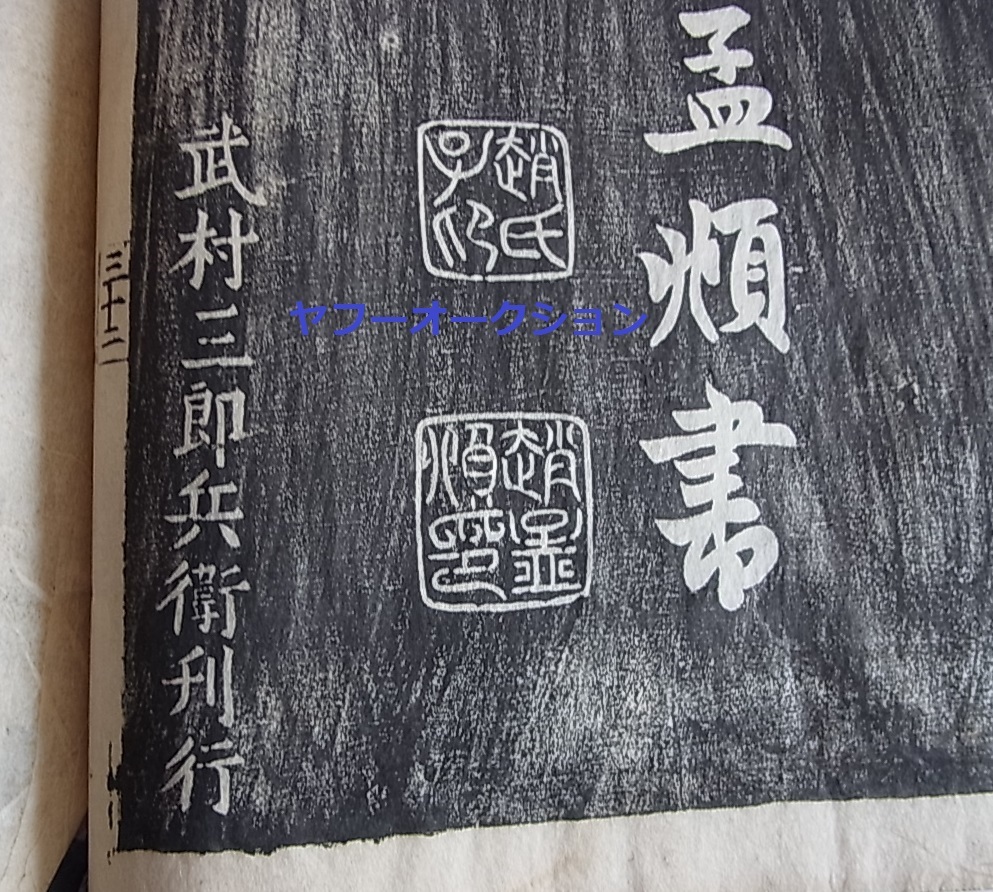 孟頫書
趙氏子卬
趙孟頫印
武村三郎兵衛刊行
三十二
ヤフーオークション